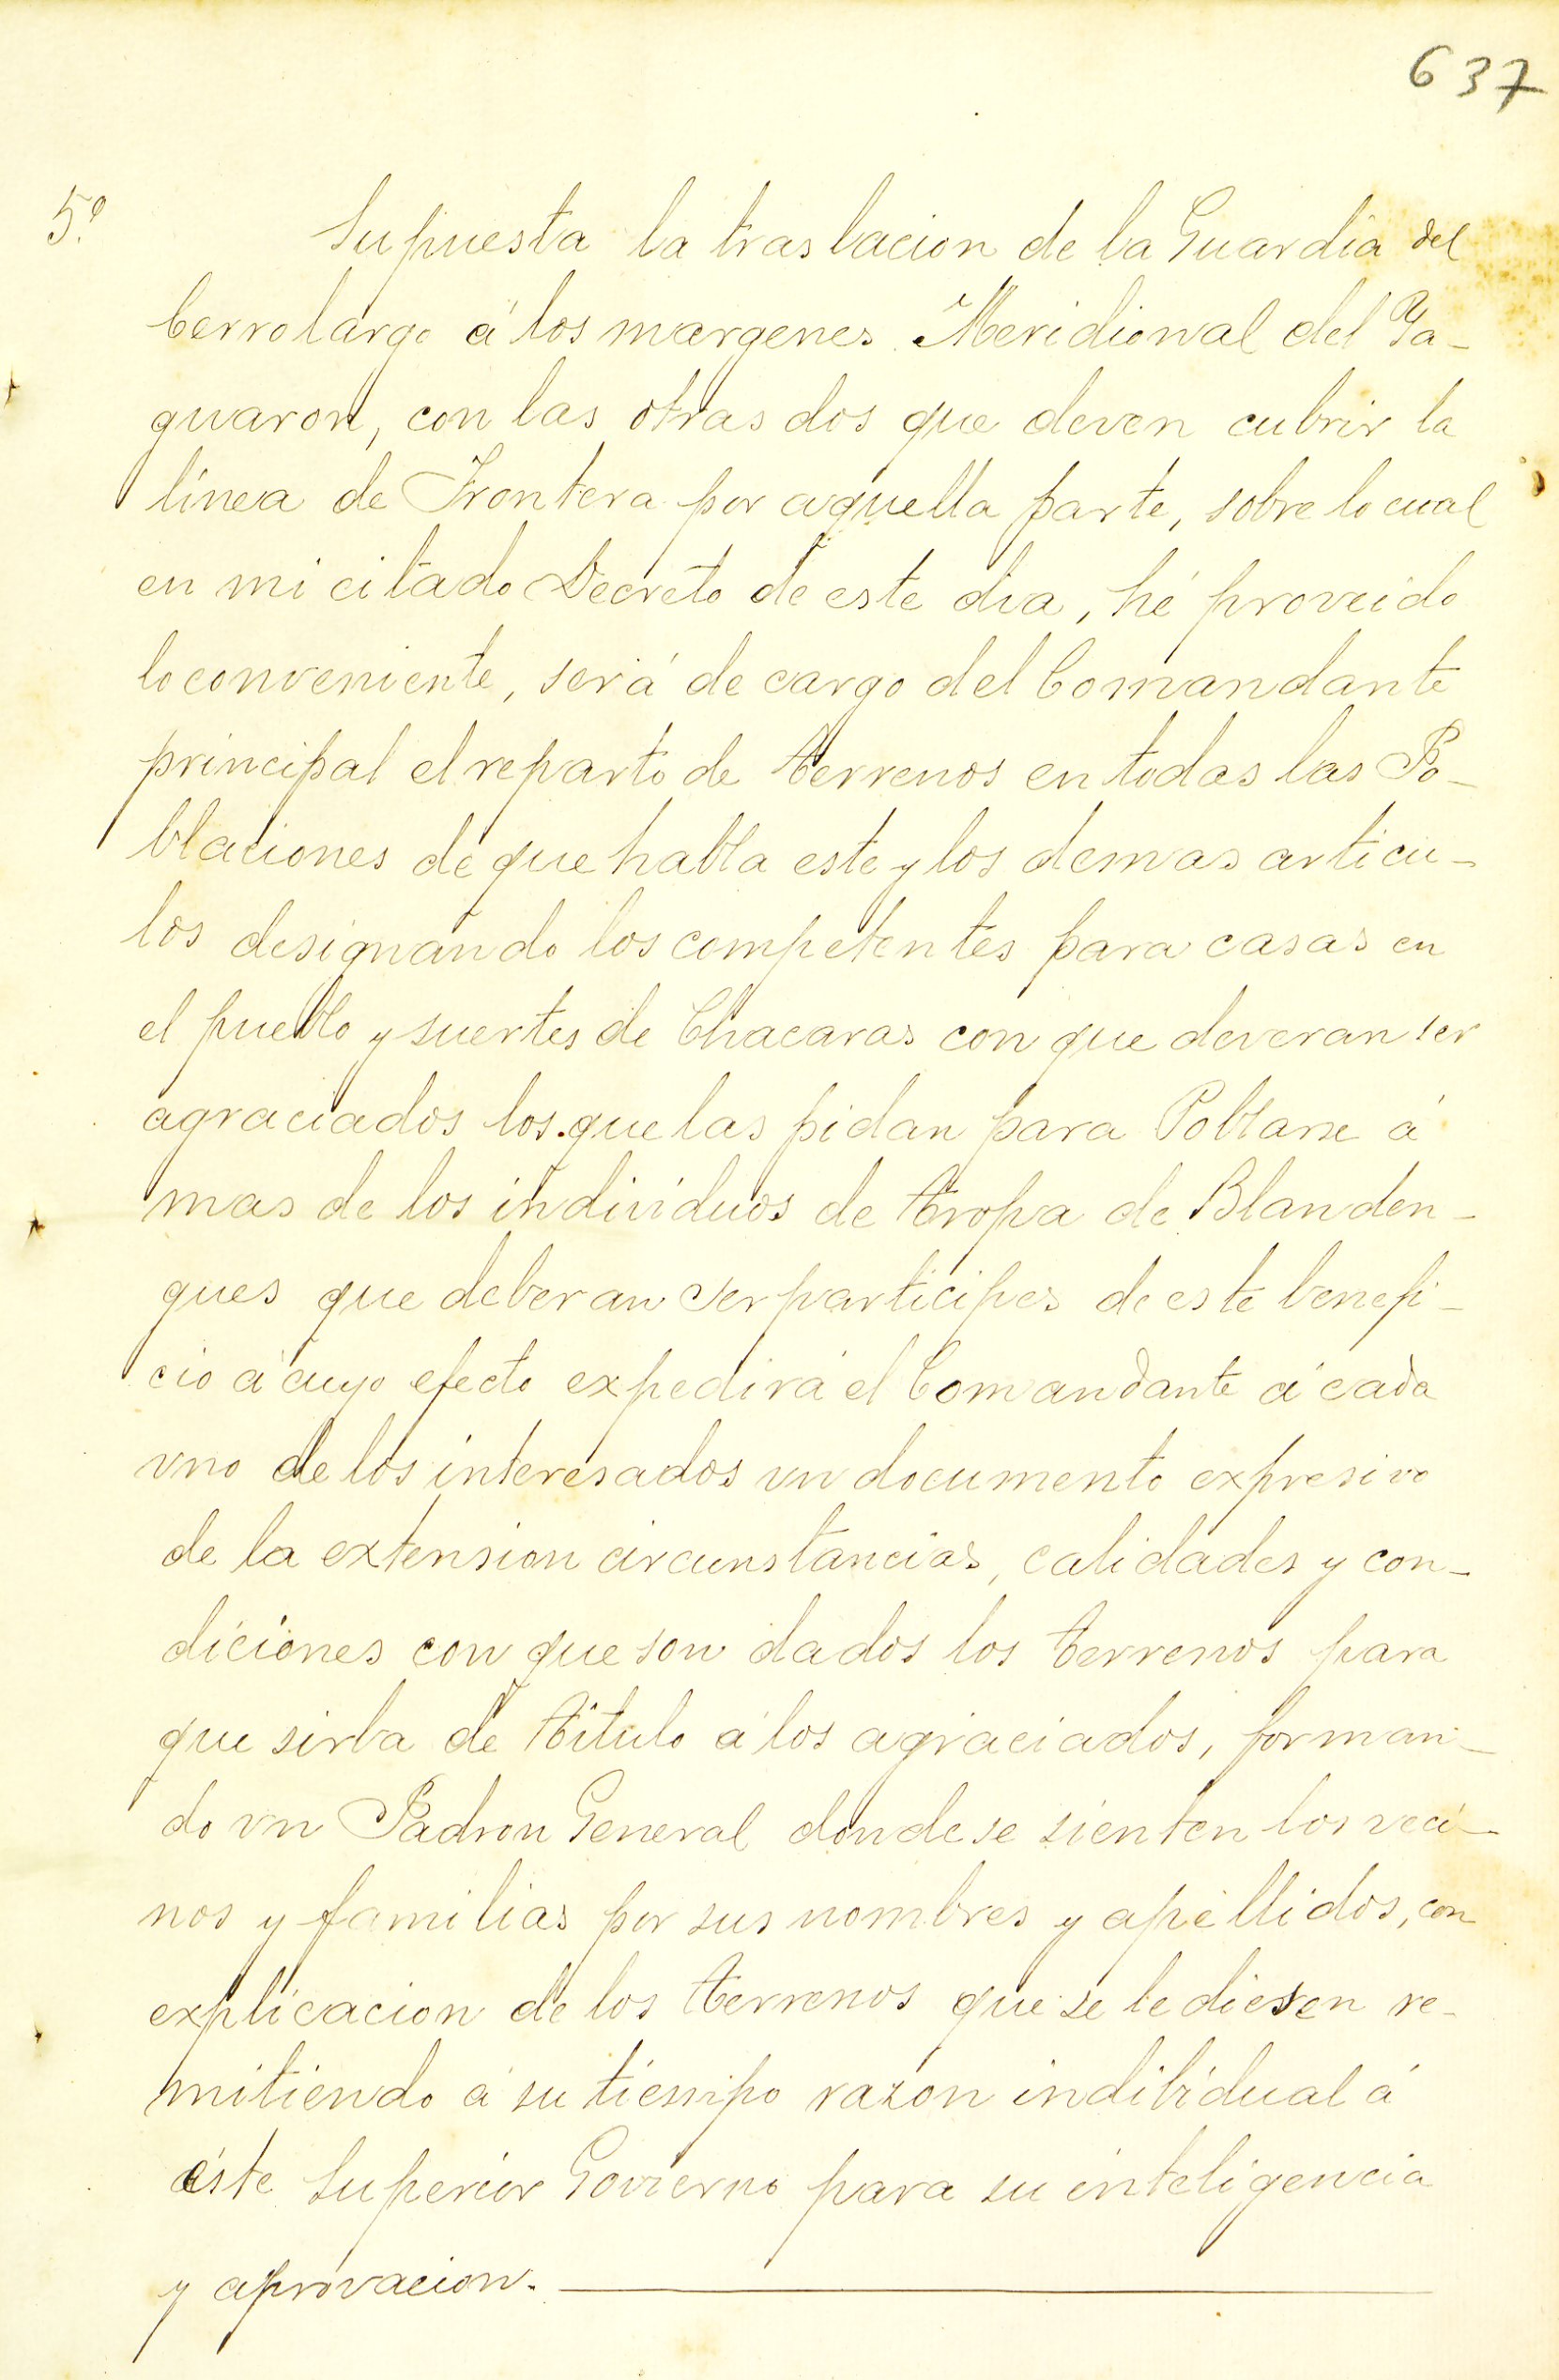 637
5º. Supuesta la traslacion de la Guardia del
Cerro largo á los margenes Meridional del Ya-
guaron, con las otras dos que deven cubrir la
línea de Frontera por aquella parte, sobre lo cual
en mi citado Decreto de este dia, hé proveido
lo conveniente, será de cargo del Comandante
principal el reparto de terrenos en todas las Po-
blaciones de que habla este y los demas articu-
los designando los competentes para casas en
el pueblo y suertes de Chacaras con que deveran ser
agraciados los que las pidan para Poblarse á
mas de los individuos de tropa de Blanden-
gues que deberan ser participes de este benefi-
cio á cuyo efecto expedirá el Comandante á cada
vno de los interesados vn documento expresivo
de la extension circunstancias, calidades y con-
diciones con que son dados los terrenos para
que sirba de titulo á los agraciados, forman-
do vn Padron General donde se sienten los veci-
nos y familias por sus nombres y apellidos, con
explicacion de los terrenos que se le diesen re-
mitiendo á su tiempo razon indibidual á
éste Superior Govierno para su inteligencia
y aprovacion.